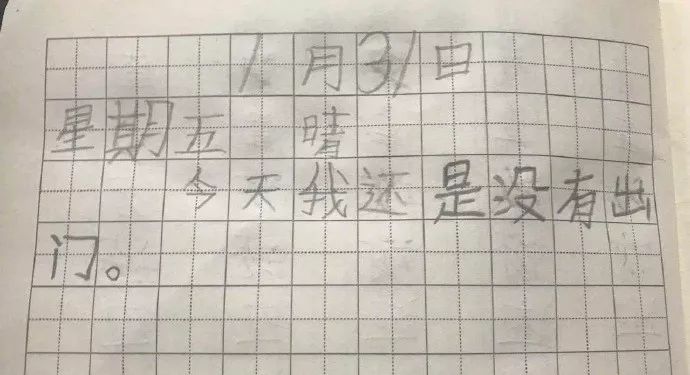 1月31日
星期五 晴
今天我还是没有出
门。